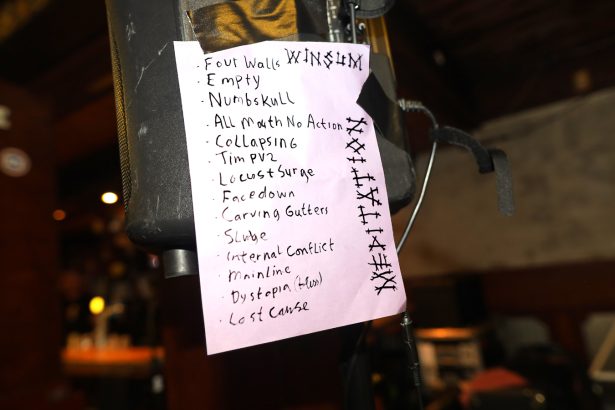 WINSUM
· Four Walls
· Empty
· Numbskull
· All Mouth No Action
· Collapsing
· Tim PV2
· Locust Surge
· Facedown
· Carving Gutters
· Internal Conflict
· Mainline
· Dystopia
· Lost Cause
MEDITATION